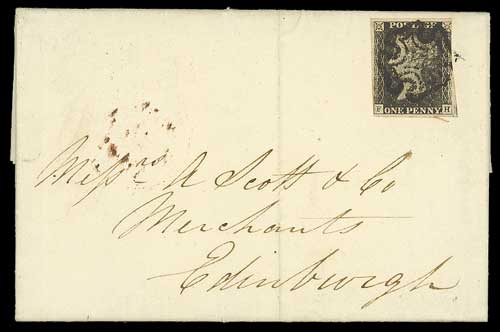 POSTAGE
F H
ONE PENNY
Messrs A Scott & Co
Merchants
Edinburgh